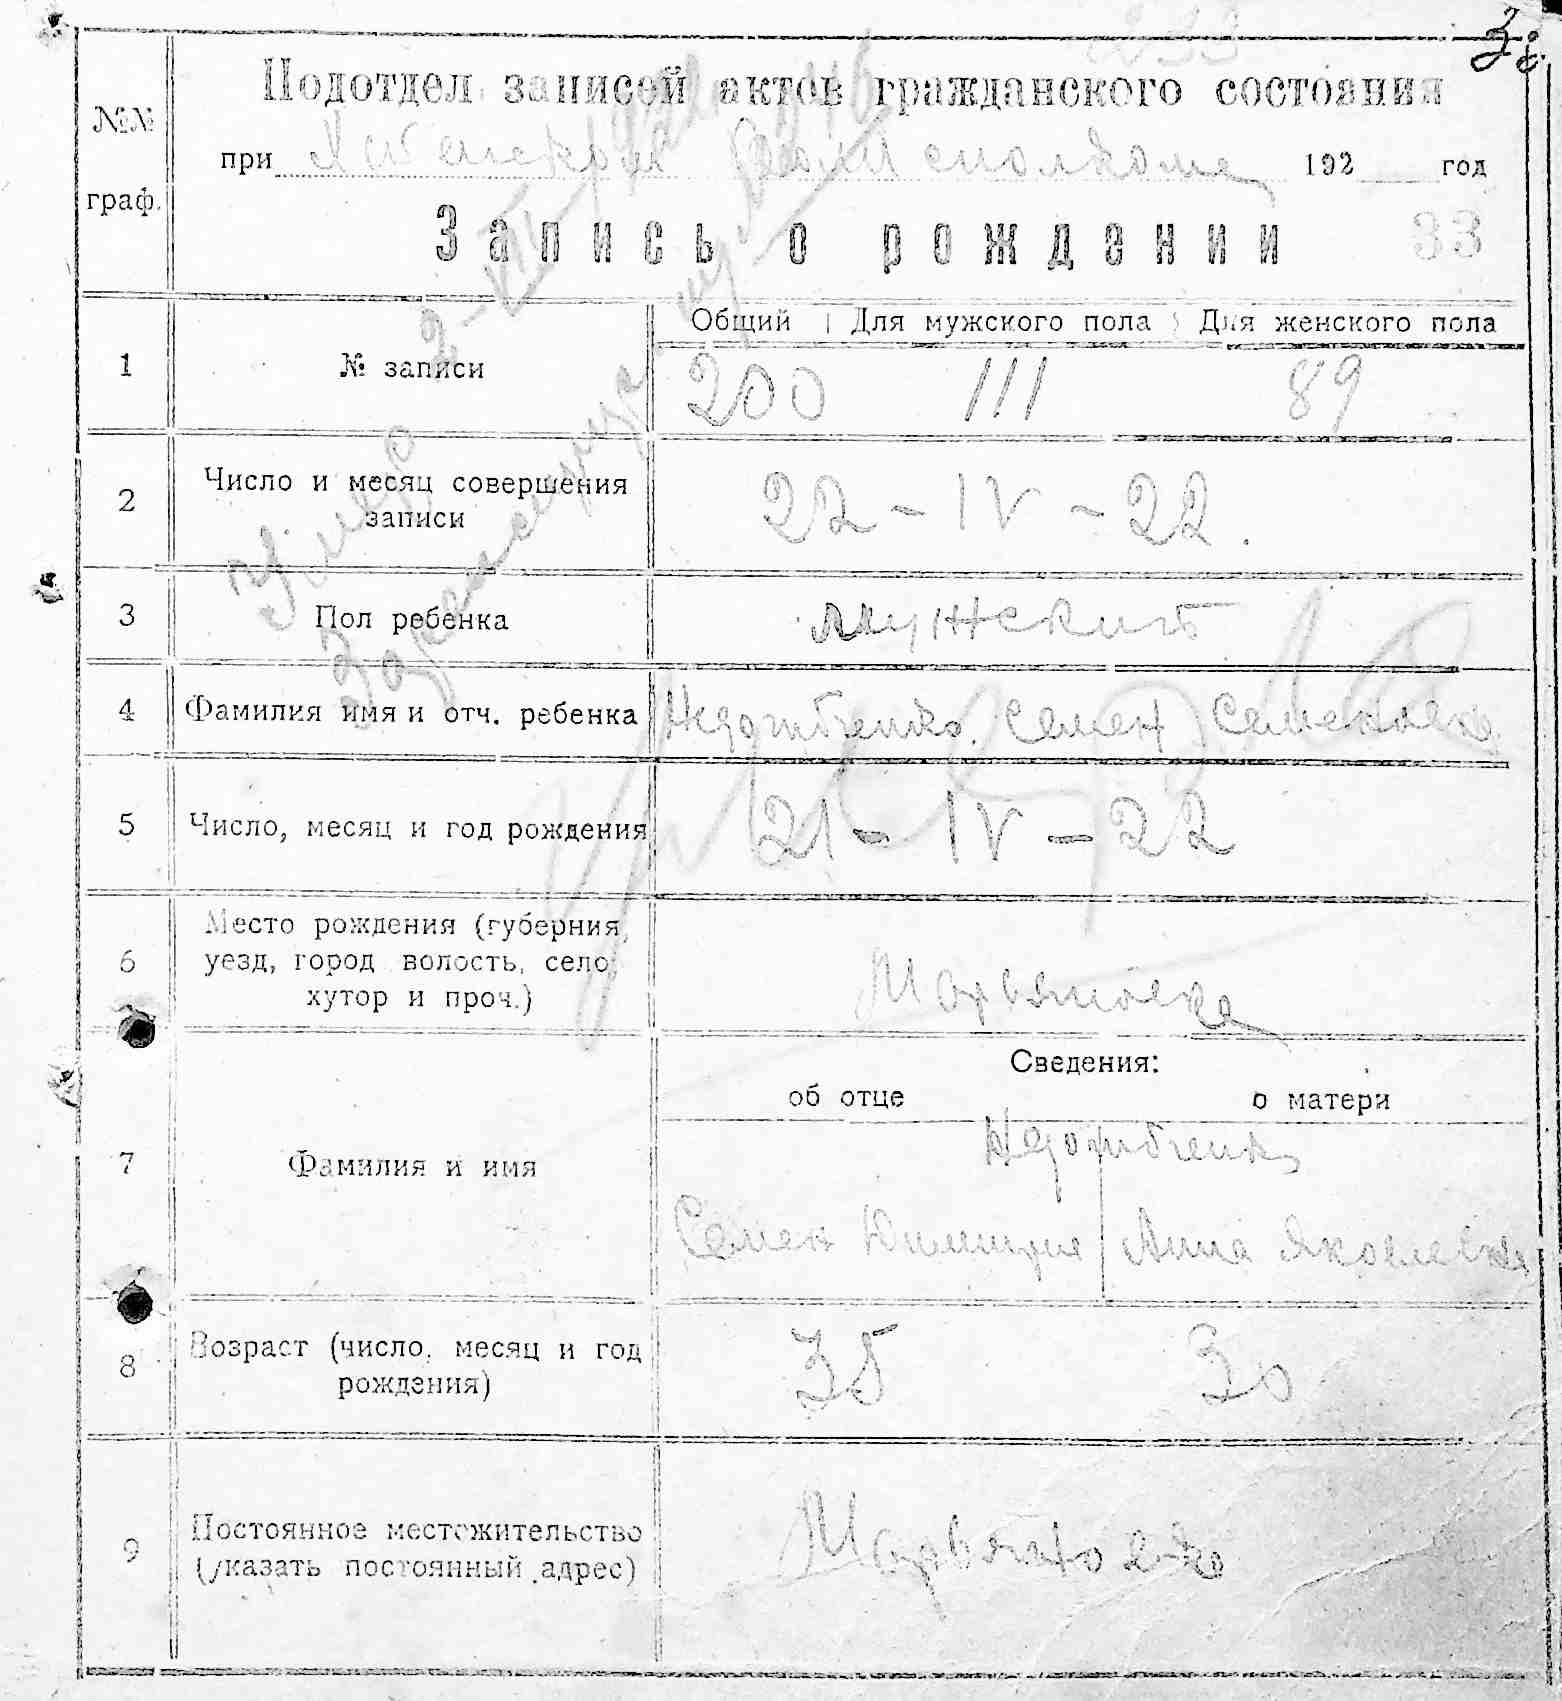 38
№№
граф.
Подотдел записей актов гражданского состояния
при исполкома 192 год
Запись о рождении
33
Общий Для мужского пола Для женского пола
1 № записи 200 111 89
2 Число и месяц совершения
записи
22 - IV - 22.
3 Пол ребенка мужской
4 Фамилия имя и отч. ребенка Семен Семенович
5 Число, месяц и год рождения 21 - IV - 22
6 Место рождения (губерния,
уезд, город волость, село,
хутор и проч.)
Марьяновка
Сведения:
об отце о матери
7 Фамилия и имя
Семен Анна Яковлевна
8 Возраст (число, месяц и год
рождения)
35 30
9 Постоянное местожительство
(указать постоянный адрес)
Марьяновка
умер